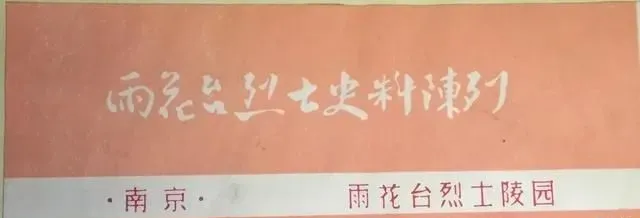 雨花台烈士史料陳列
·南京· 雨花台烈士陵园